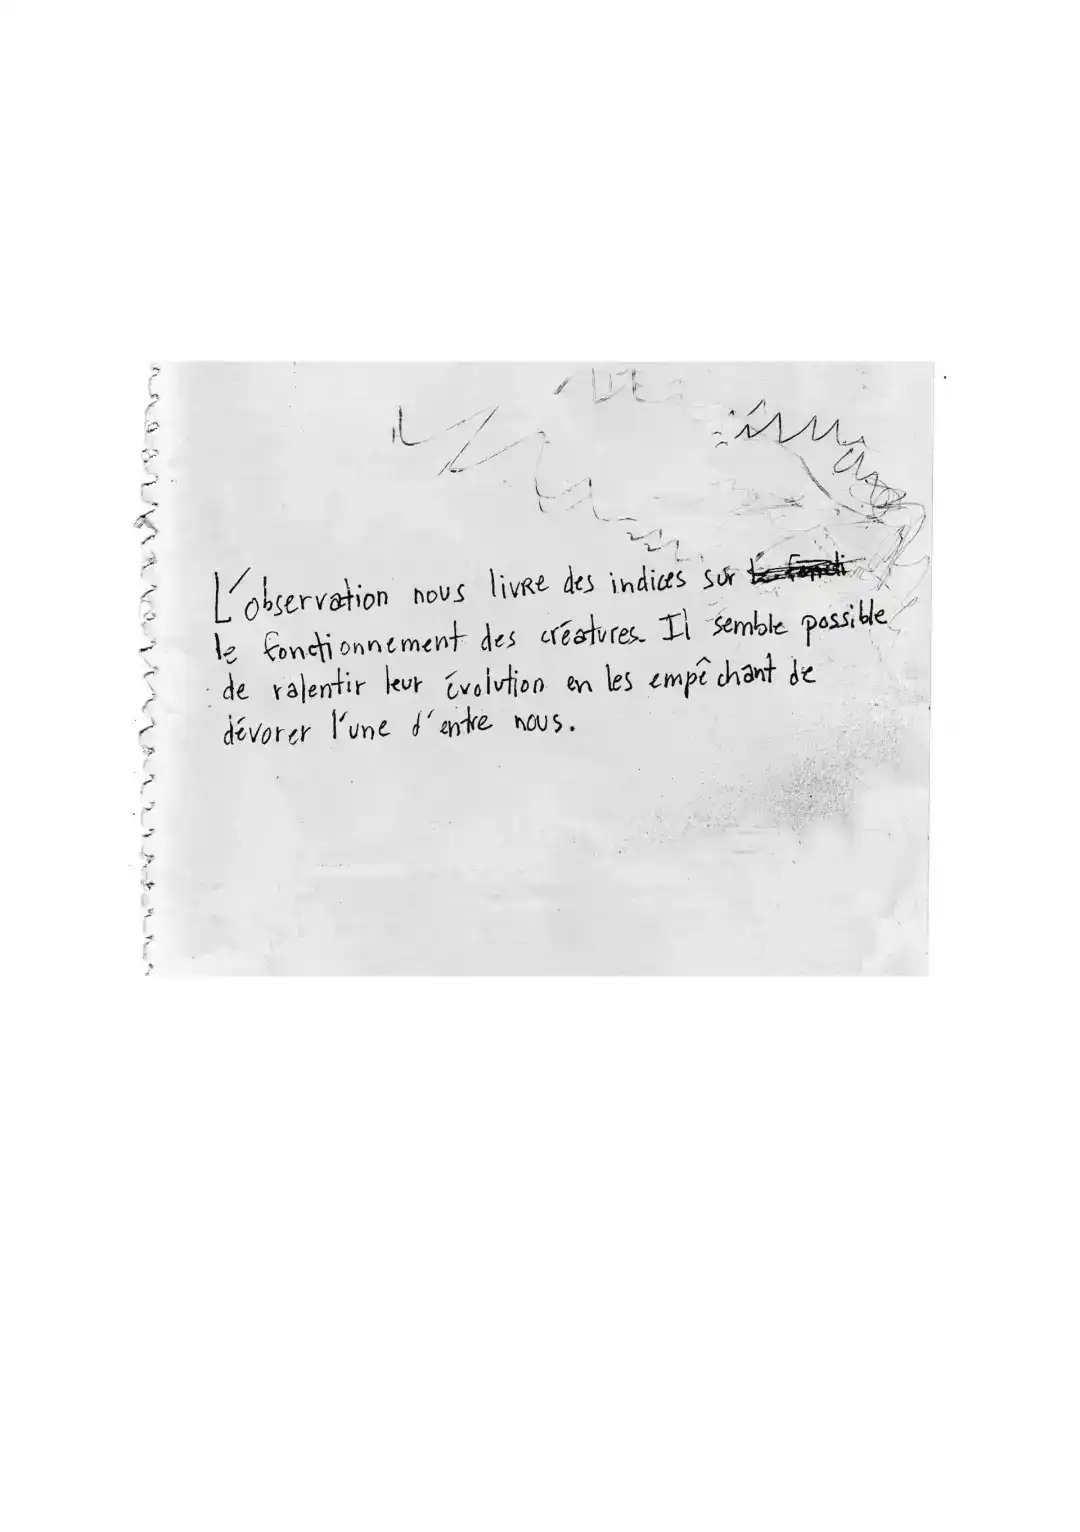 L'observation nous livre des indices sur le foncti
le fonctionnement des créatures. Il semble possible
de ralentir leur évolution en les empêchant de
dévorer l'une d'entre nous.